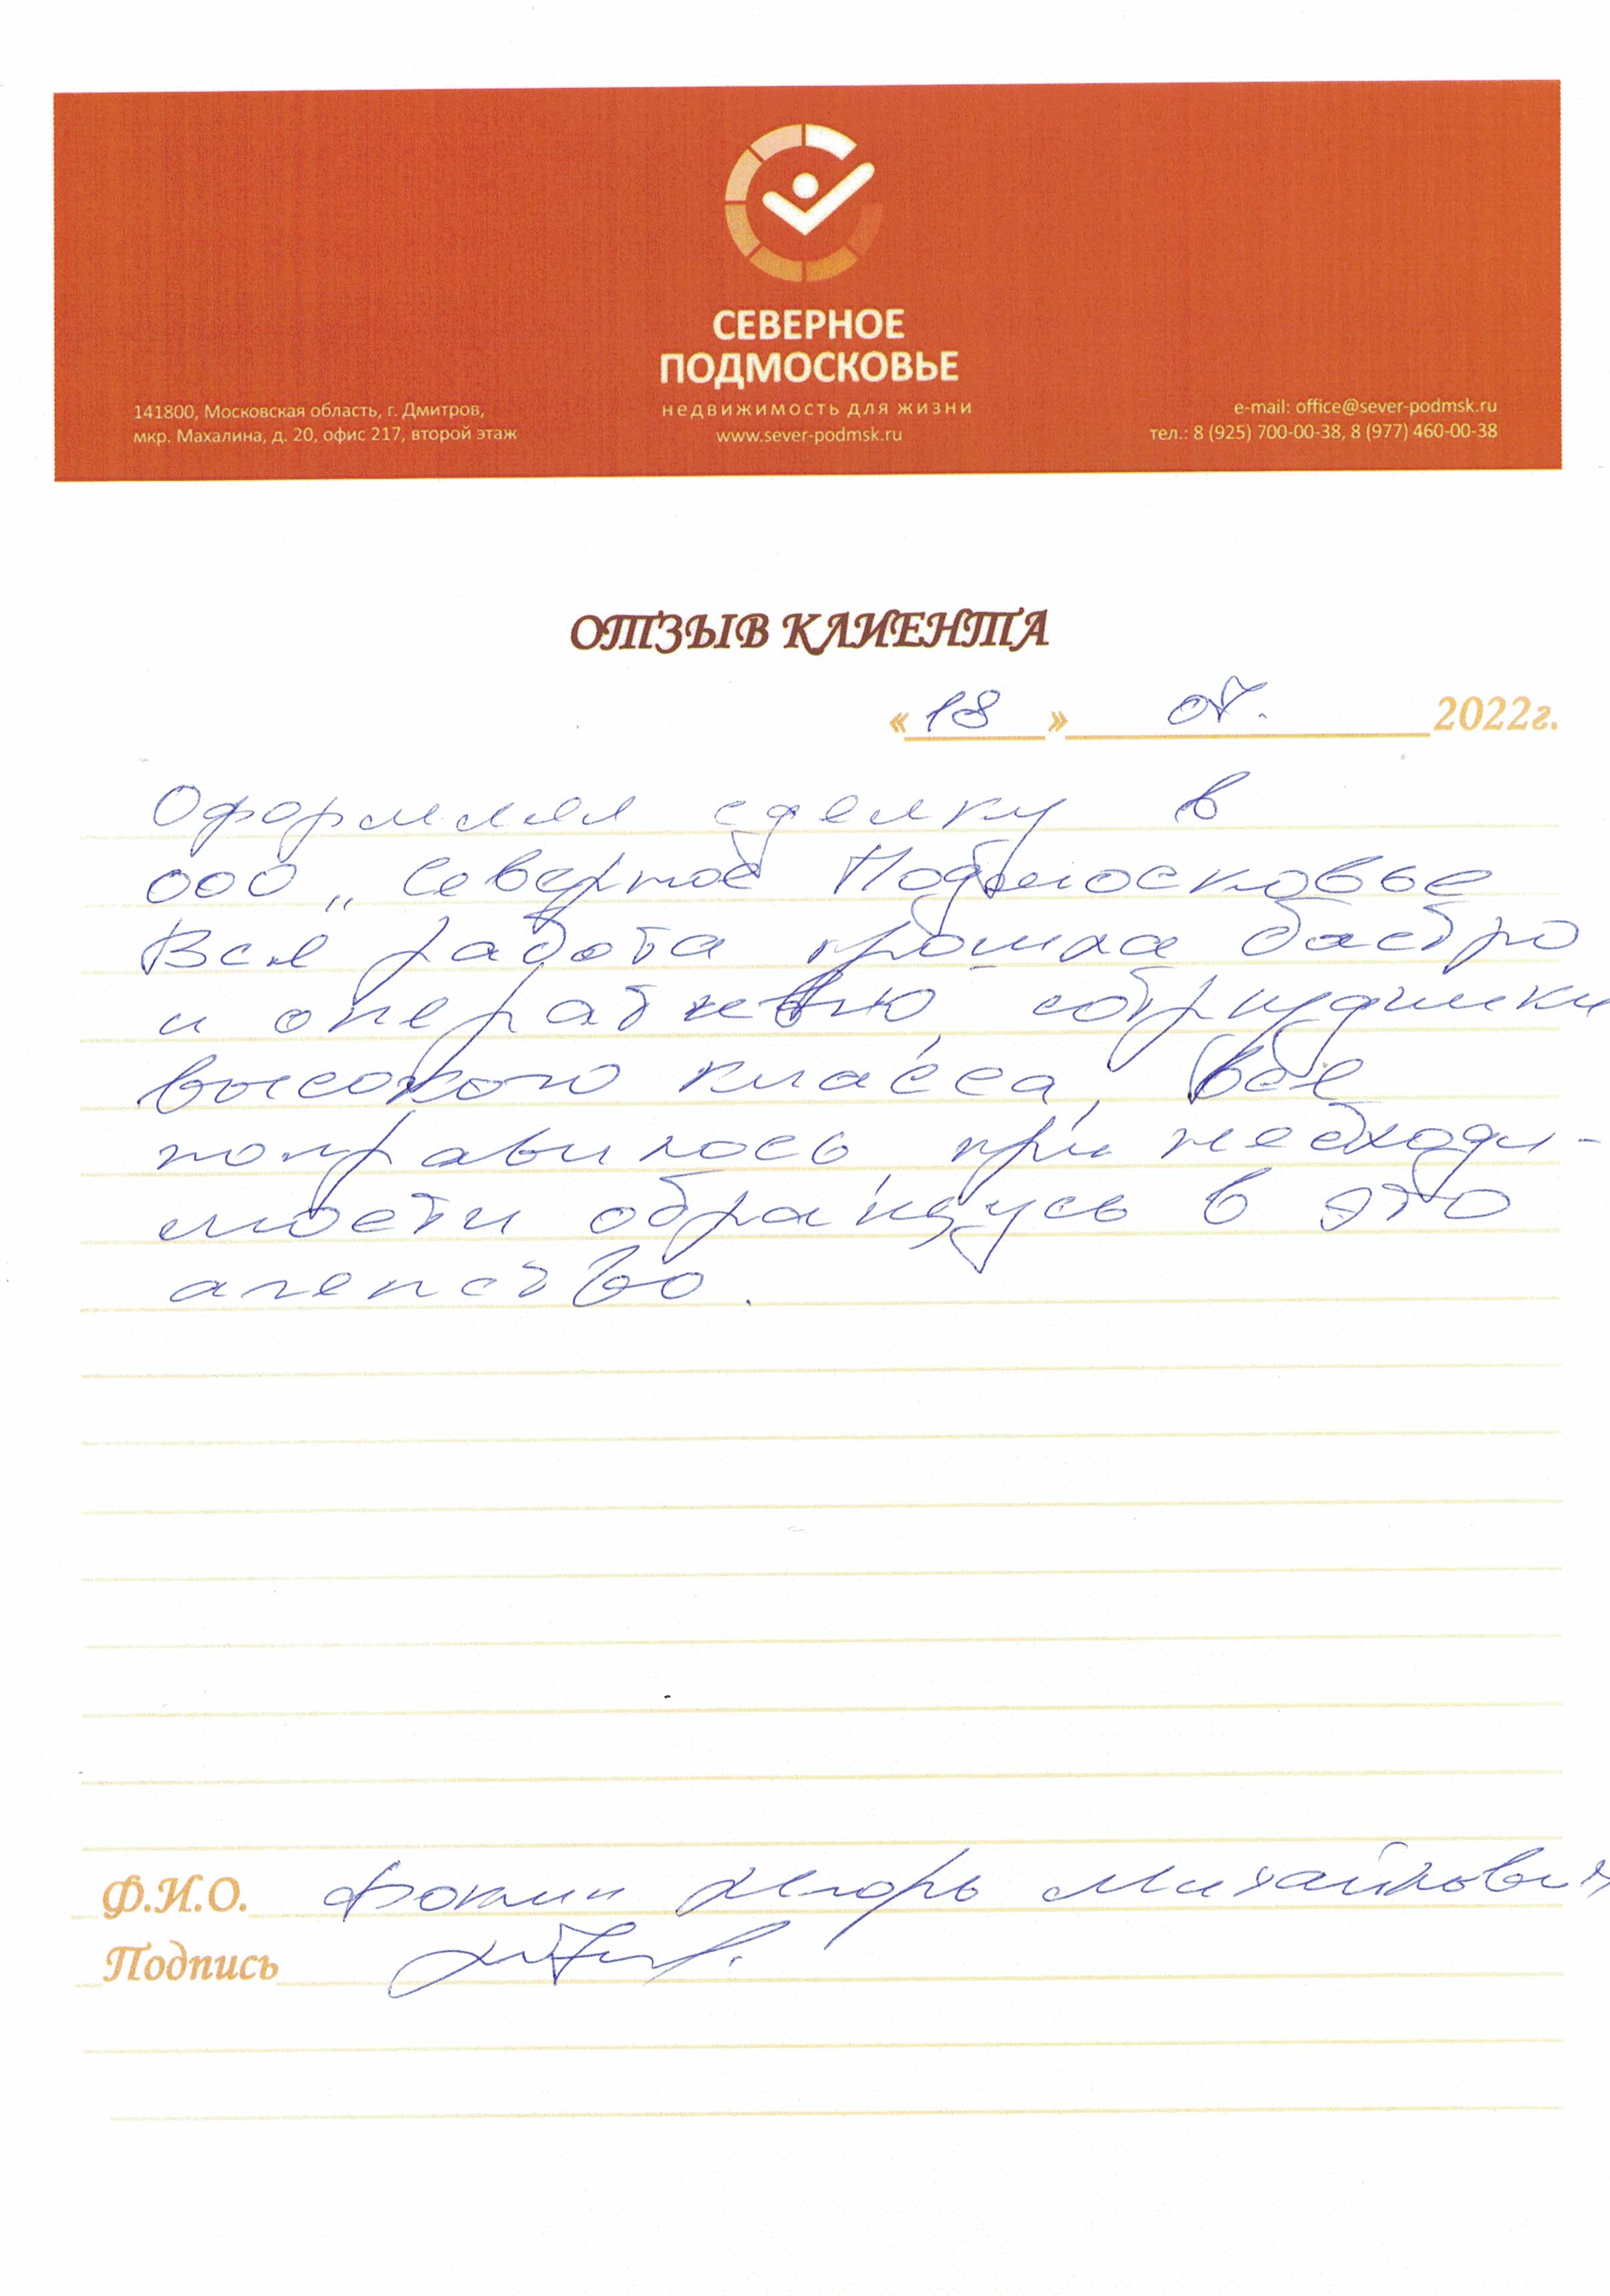 СЕВЕРНОЕ
ПОДМОСКОВЬЕ
недвижимость для жизни
www.sever-podmsk.ru
141800, Московская область, г. Дмитров,
мкр. Махалина, д. 20, офис 217, второй этаж
e-mail: office@sever-podmsk.ru
тел.: 8 (925) 700-00-38, 8 (977) 460-00-38
ОТЗЫВ КЛИЕНТА
«18» 07. 2022г.
Оформлял сделку в
ООО „Северное Подмосковье
Вся работа прошла быстро
и оперативно, сотрудники
высокого класса, все
понравилось, при необходи-
мости обращусь в это
агенство.
Ф.И.О. Фокин Игорь Михайлович
Подпись